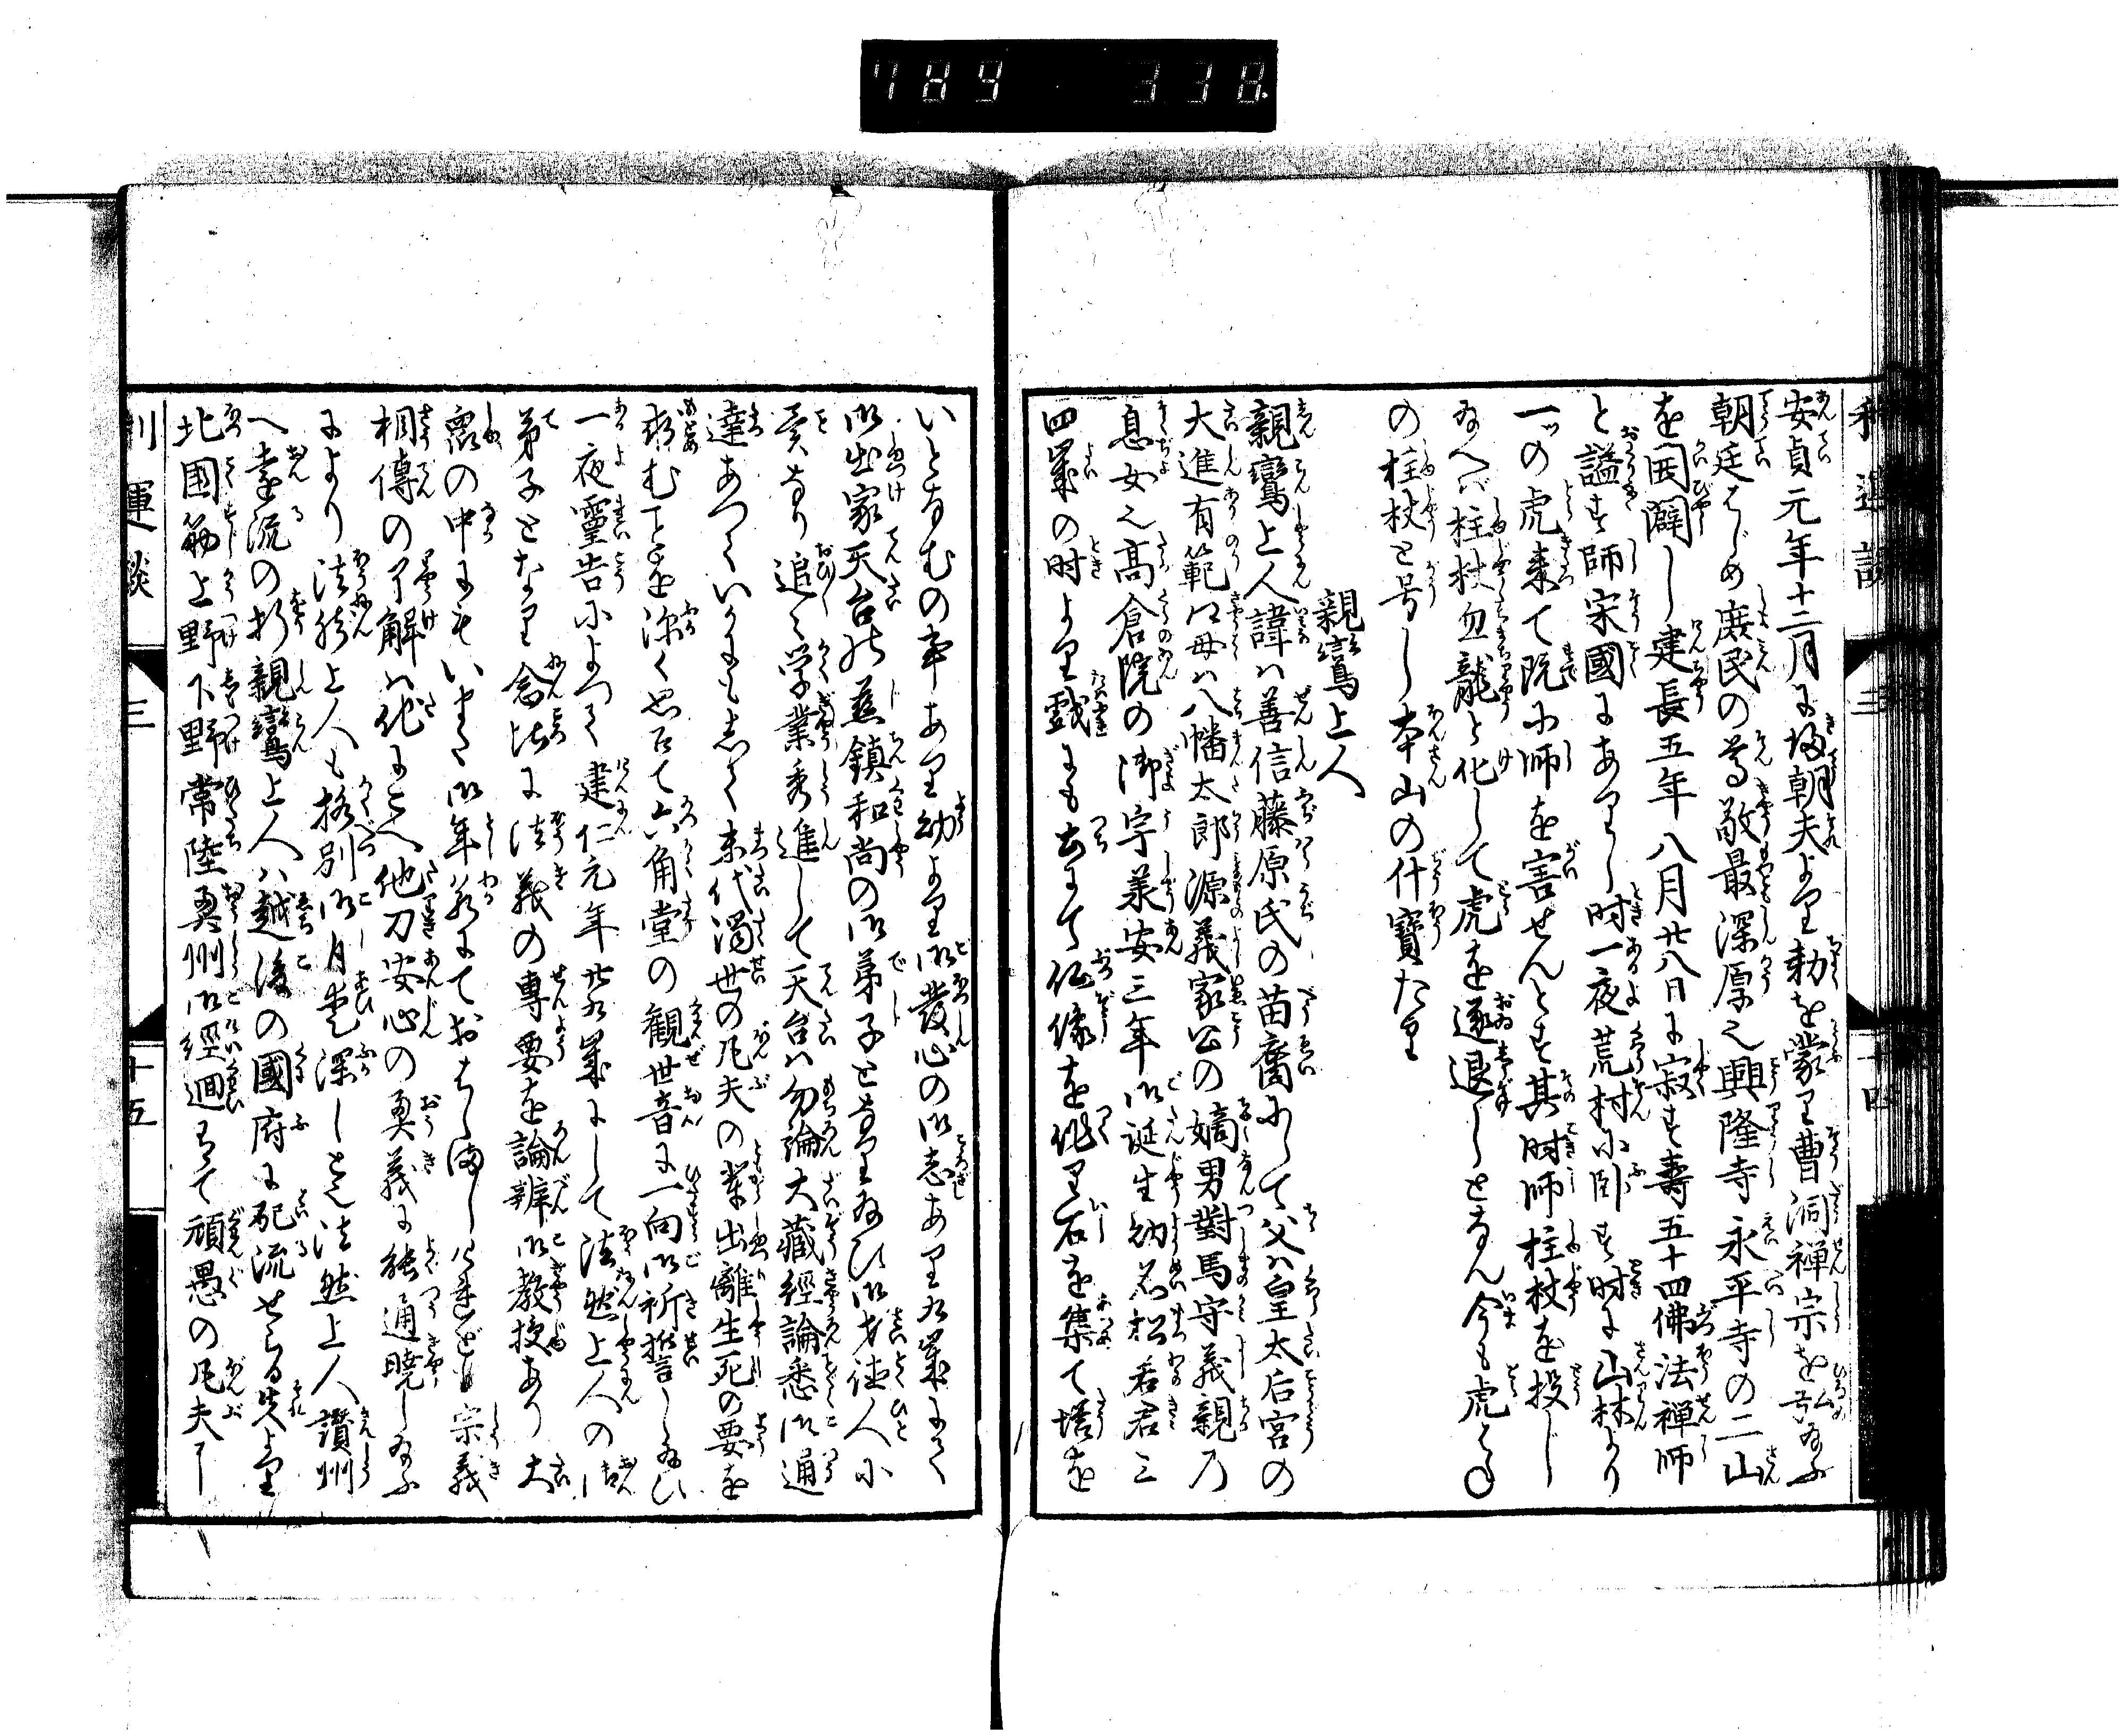 789 338
安貞元年十二月に帰朝夫より勅を蒙り曹洞禅宗を弘給ふ
朝廷はじめ庶民の尊敬最深厚之興隆寺永平寺の二山
を開闢し建長五年八月廿八日に寂す壽五十四佛法禅師
と謚す師宋國にありし時一夜荒村に臥す時に山林より
一ツの虎来て既に師を害せんとす其時師柱杖を投じ
給へば柱杖忽龍と化して虎を逐退しとなん今も虎
の柱杖と号し本山の什寶たり
親鸞上人
親鸞上人諱ハ善信藤原氏の苗裔にして父ハ皇太后宮の
大進有範御母ハ八幡太郎源義家公の嫡男對馬守義親乃
息女之高倉院の御宇承安三年御誕生幼名松若君三
四歳の时より戯にも土にて佛像を作り石を集て塔を
いとなむの事あり幼より御發心の御志あり九歳にて
御出家天台の慈鎮和尚の御弟子となり給ひ御才徳人に
異なり追々学業秀進して天台ハ勿論大藏經論悉御通
達あつていかにもして末代濁世の凡夫の輩出離生死の要を
求むことを深く思召て六角堂の観世音に一向御祈誓し給ひ
一夜靈告によつて建仁元年廿九歳にして法然上人の御
弟子となり念比に法義の專要を論辨御教授あり大
衆の中にもいまだ御年若にておはし満しけれども宗義
相傳の了解ハ他に
こへ他力安心の奥義に能通曉し給ふ
により法然上人も格別御目遣深しとぞ法然上人讃州
へ遠流の折親鸞上人ハ越後の國府に配流せらる夫より
北國筋上野下野常陸奥州御經迴有て頑愚の凡夫に
利運談 三 十五
三 十四